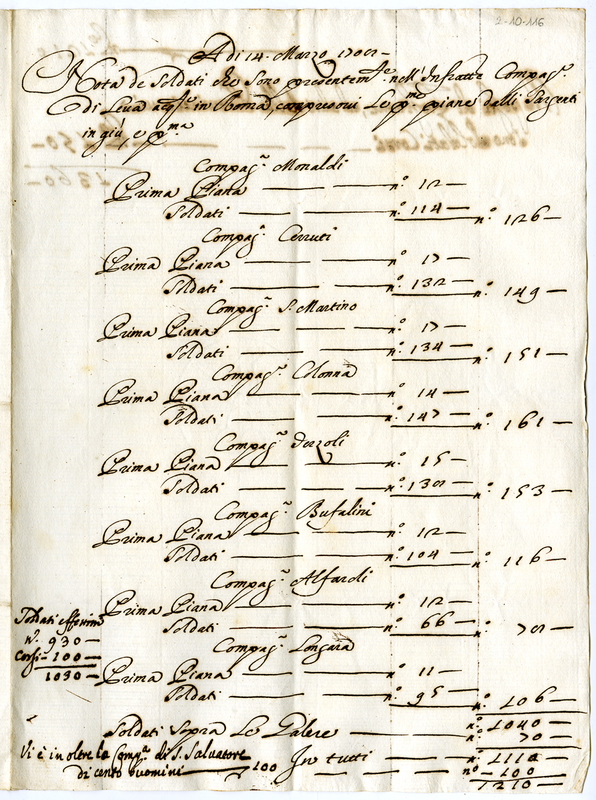 2-10-116
A di 14. Marzo 1708
Nota de Soldati che sono presentemte. nell' Infratte Compag.
di Leva in Roma, compresovi Le pme. piane delli Sargenti
in giù, e pma
Compag. Monaldi
Prima Piana — n.° 12 —
Soldati — n.° 114 — n.° 126 —
Compag. Cerruti
Prima Piana — n.° 17 —
Soldati — n.° 132 — n.° 149 —
Compag. S. Martino
Prima Piana — n.° 17 —
Soldati — n.° 134 — n.° 151 —
Compag. Colonna
Prima Piana — n.° 14 —
Soldati — n.° 147 — n.° 161 —
Compag.
Prima Piana — n.° 15 —
Soldati — n.° 138 — n.° 153 —
Compag. Bufalini
Prima Piana — n.° 12 —
Soldati — n.° 104 — n.° 116 —
Compag. Alfaroli
Prima Piana — n.° 12 —
Soldati — n.° 66 — n.° 78 —
Compag. Longara
Prima Piana — n.° 11 —
Soldati — n.° 95 — n.° 106 —
n.° 1040 —
Soldati Sopra Le Galere — n.° 70 —
In tutti — n.° 1110 —
Vi è in oltre la Compa. di S. Salvatore
di cento huomini — 100 — n.° 100 —
1210 —
Soldati effettivi
N.° 930 —
Corsi — 100 —
1030 —